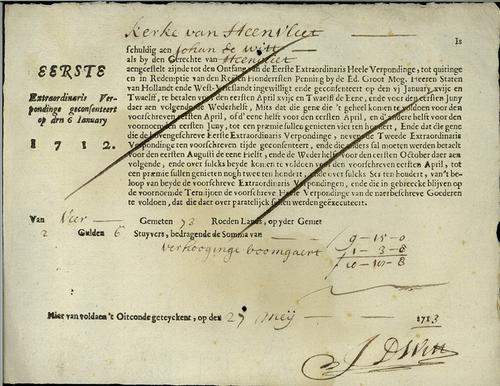 Kerke van Heenvliet
Is
schuldig aen Johan de Witt
als by den Gerechte van Heenvliet
aengestelt zijnde tot den Ontfang van de Eerste Extraordinaris Heele Verpondinge, tot quitinge
en in Redemptie van den Reëlen Hondertsten Penning by de Ed. Groot Mog. Heeren Staten
van Hollandt ende West-Vrieslandt ingewilligt ende geconsenteert op den vj January, xvijc en
Twaelff, te betalen voor den eersten April xvijc en Twaelff de Eene, ende voor den eersten Juny
daer aen volgende de Wederhelft, Mits dat die gene die 't geheel komen te voldoen voor den
voorschreven eersten April, of d'eene helft voor den eersten April, en d'andere helft voor den
voornoemden eersten Juny, tot een præmie sullen genieten vier ten hondert, Ende dat die gene
EERSTE
Extraordinaris Ver-
pondinge geconsenteert
op den 6 January
1712.
voor den eersten Augusti de eene Helft, ende de Wederhelft voor den eersten October daer aen
volgende, ende over sulks die komen te voldoen voor den voorschreven eersten April, tot
een præmie sullen genieten nogh twee ten hondert,
beloop van beyde de voorschreve Extraordinaris Verpondingen, ende die in gebreecke blijven op
de voornoemde Termijnen de voorschreve Heele Verpondinge van de naerbeschreve Goederen
te voldoen, dat die daer over paratelijk sullen werden geëxecuteert.
Van Vier Gemeten 73 Roeden Lants, op yder Gemet
2 Gulden 6 Stuyvers, bedragende de Somma van 9 - 15 - 0
Verhooginge boomgaert 1 - 3 - 8
10 - 18 - 8
Hier van voldaen 't Oirconde geteyckent, op den 27 Meij 1713
J D Witt